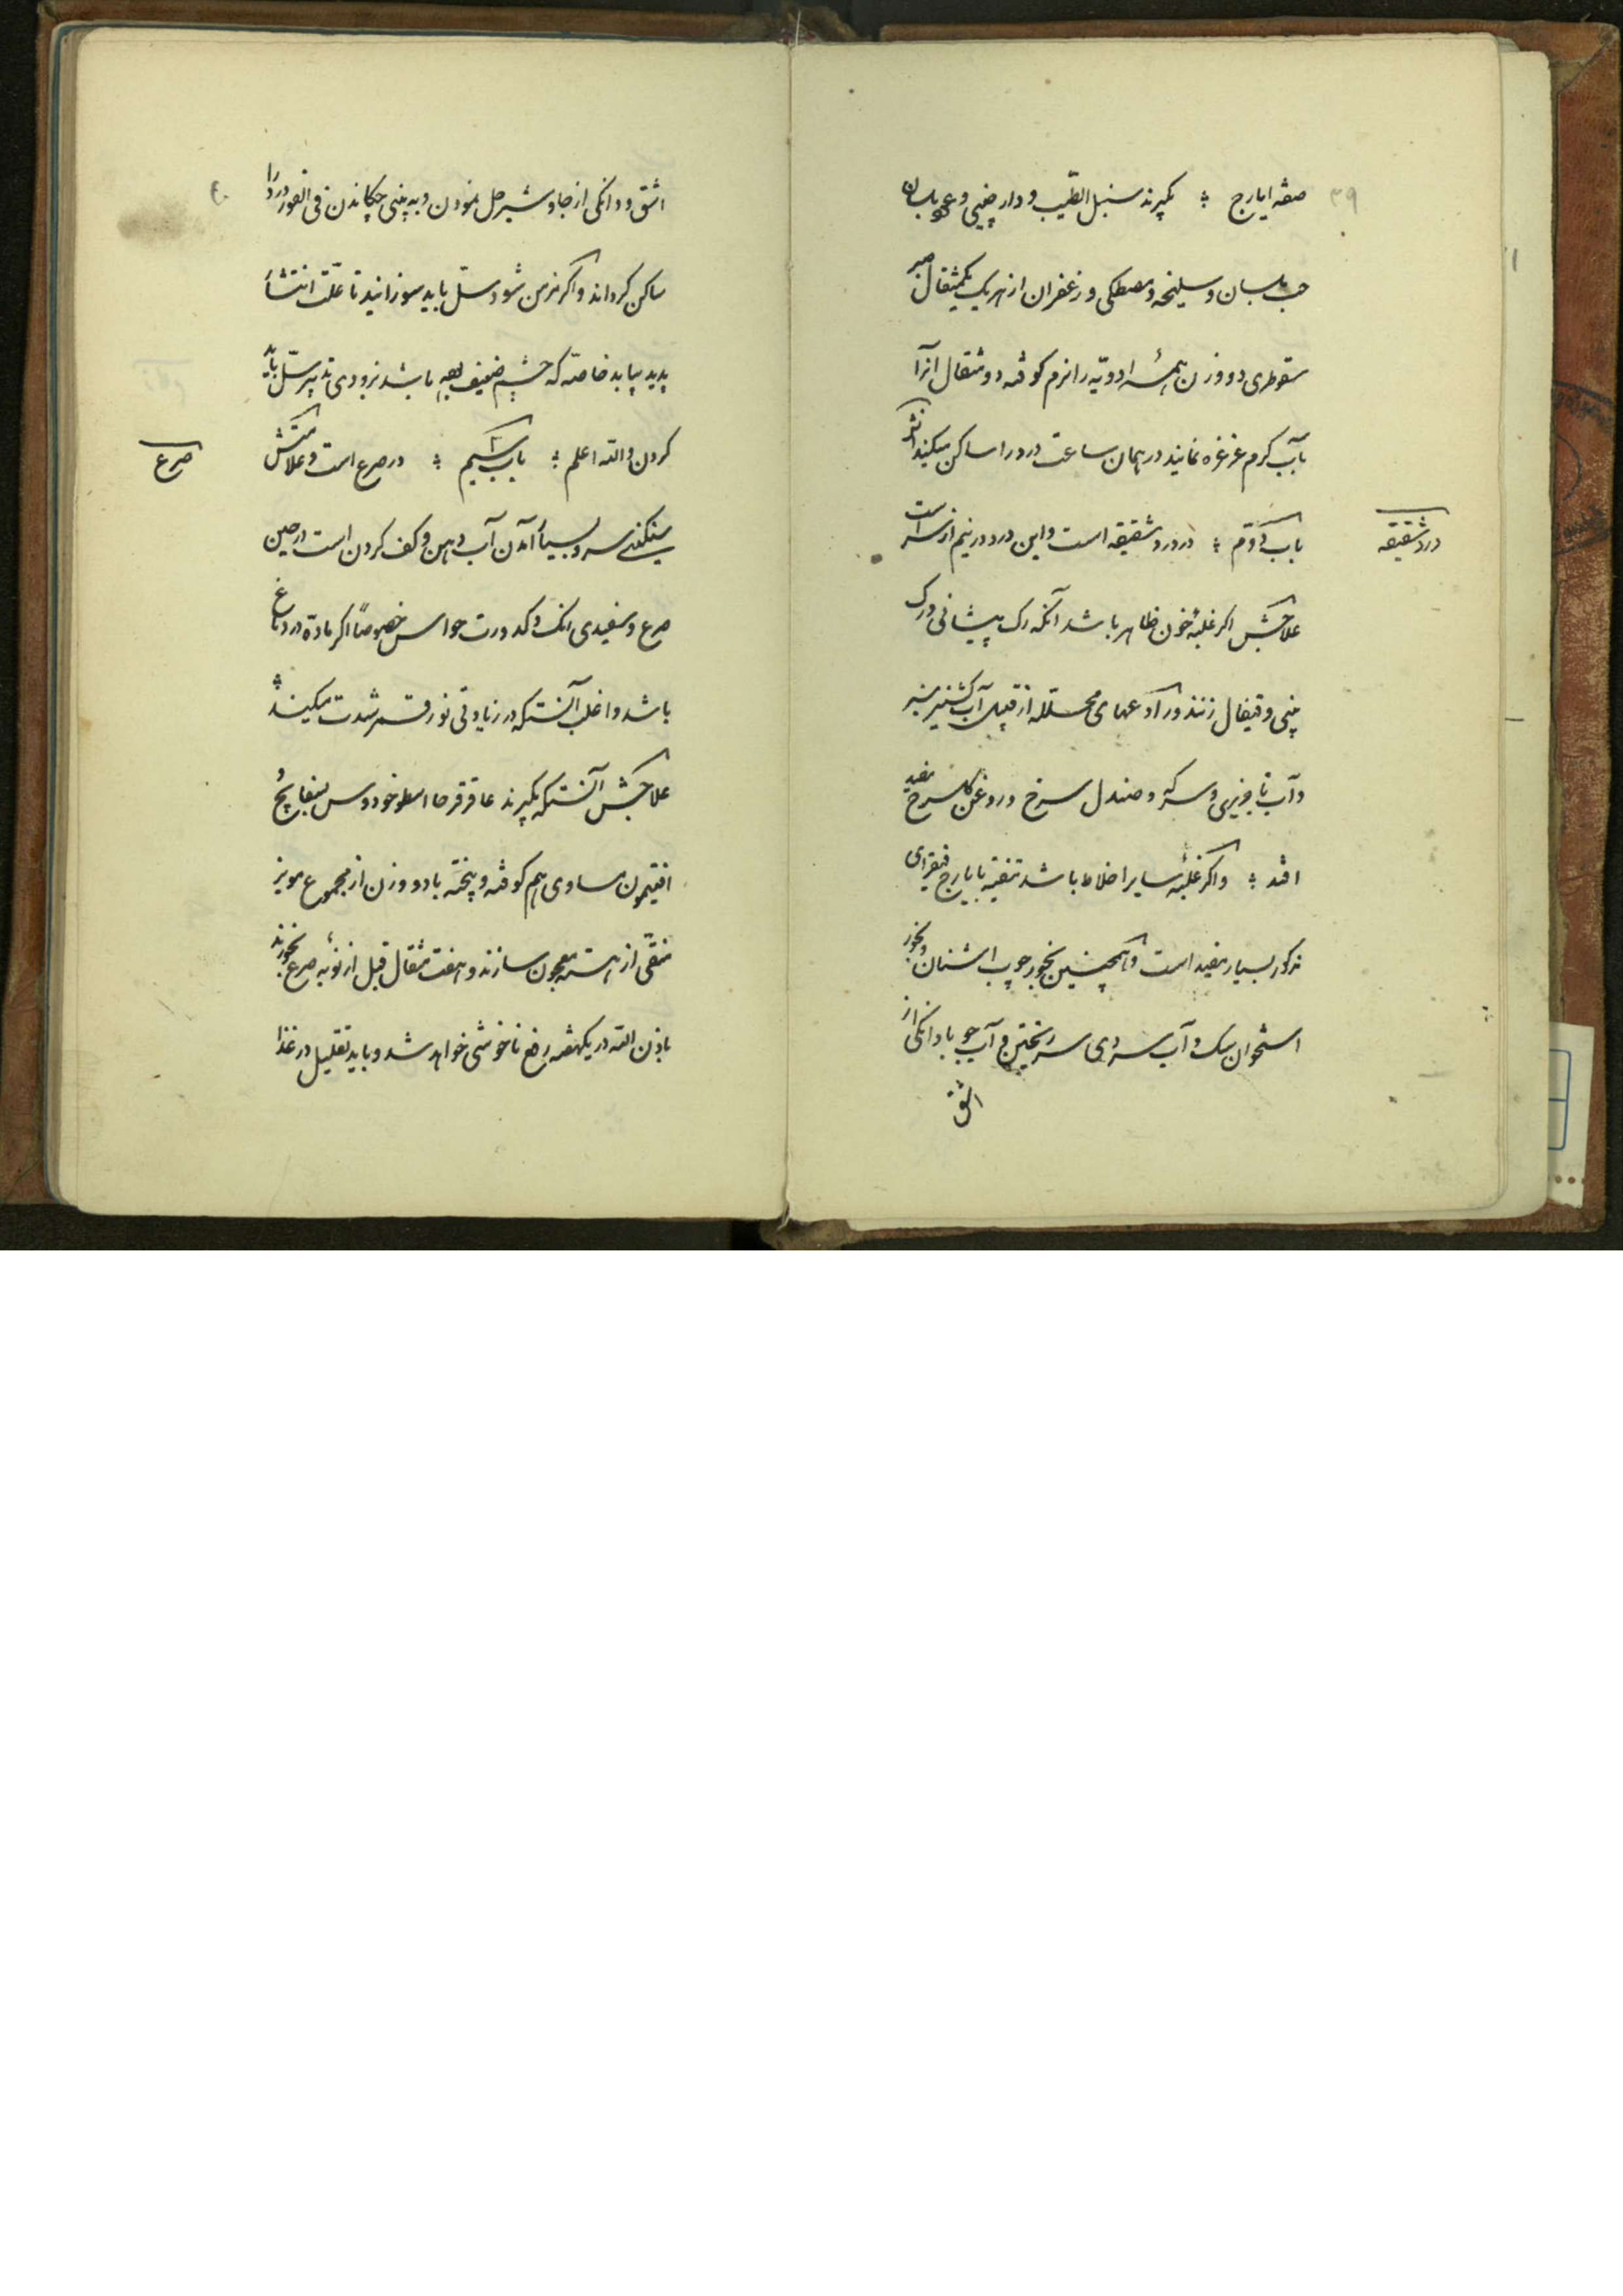 ۳۹
صفة ایارج ؛ بکیرند سنبل الطّیب و دارچینی و عود بلسان
حب بلسان و سلیخه و مصطکی و زعفران از هر یک یکمثقال صبر
سقوطری دو وزن همهٔ ادویّه را نرم کوفته دو مثقال آنرا
بآب کرم غرغره نمایند در همان ساعت درد را ساکن میکند
باب دوّم ؛ در درد شقیقه است و این درد در نیم از سر است
درد شقیقه
علاجش اکر غلبهٔ خون ظاهر باشد آنکه رک پیشانی و رک
بینی و قیفال زنند و رادعهای محلّله از قبیل آب کشنیز سبز
و آب تاجریزی و سرکه و صندل سرخ و روغن کلسرخ مفید
افتد ؛ و اکر غلبهٔ سایر اخلاط باشد تنقیه بایارج فیقرای
مذکور بسیار مفید است و همچنین بخور چوب اشنان و بخور
استخوان سک و آب سردی سر ریختن و آب جو با دانکی از
اشق
اشق و دانکی از جاوشیر حل نمودن و به بینی چکاندن فی الفور درد را
ساکن کرداند و اکر مزمن شود سلّ باید سوزانید تا علّت انتشار
پدید نیاید خاصّه که چشم ضعیف باشد بزودی تدبیر سلّ باید
کردن والله اعلم ؛ باب سیّم ؛ در صرع است و علامتش
صرع
سنکینی سر و بسیار آمدن آب دهن و کف کردن است در حین
صرع و سفیدی رنک و کدورت حواس خصوصاً اکر مادّه در دماغ
باشد و اغلب آنستکه در زیادتی نور قمر شدت میکند ؛
علاجش آنستکه بکیرند عاقرقرحا اسطوخودوس بسفایج و
افتیمون مساوی هم کوفته و پخته با دو وزن از مجموع مویز
منقّی از هسته معجون سازند و هفت مثقال قبل از نوبهٔ صرع بخورند
باذن الله در یکهفته رفع ناخوشی خواهد شد و باید تقلیل در غذا